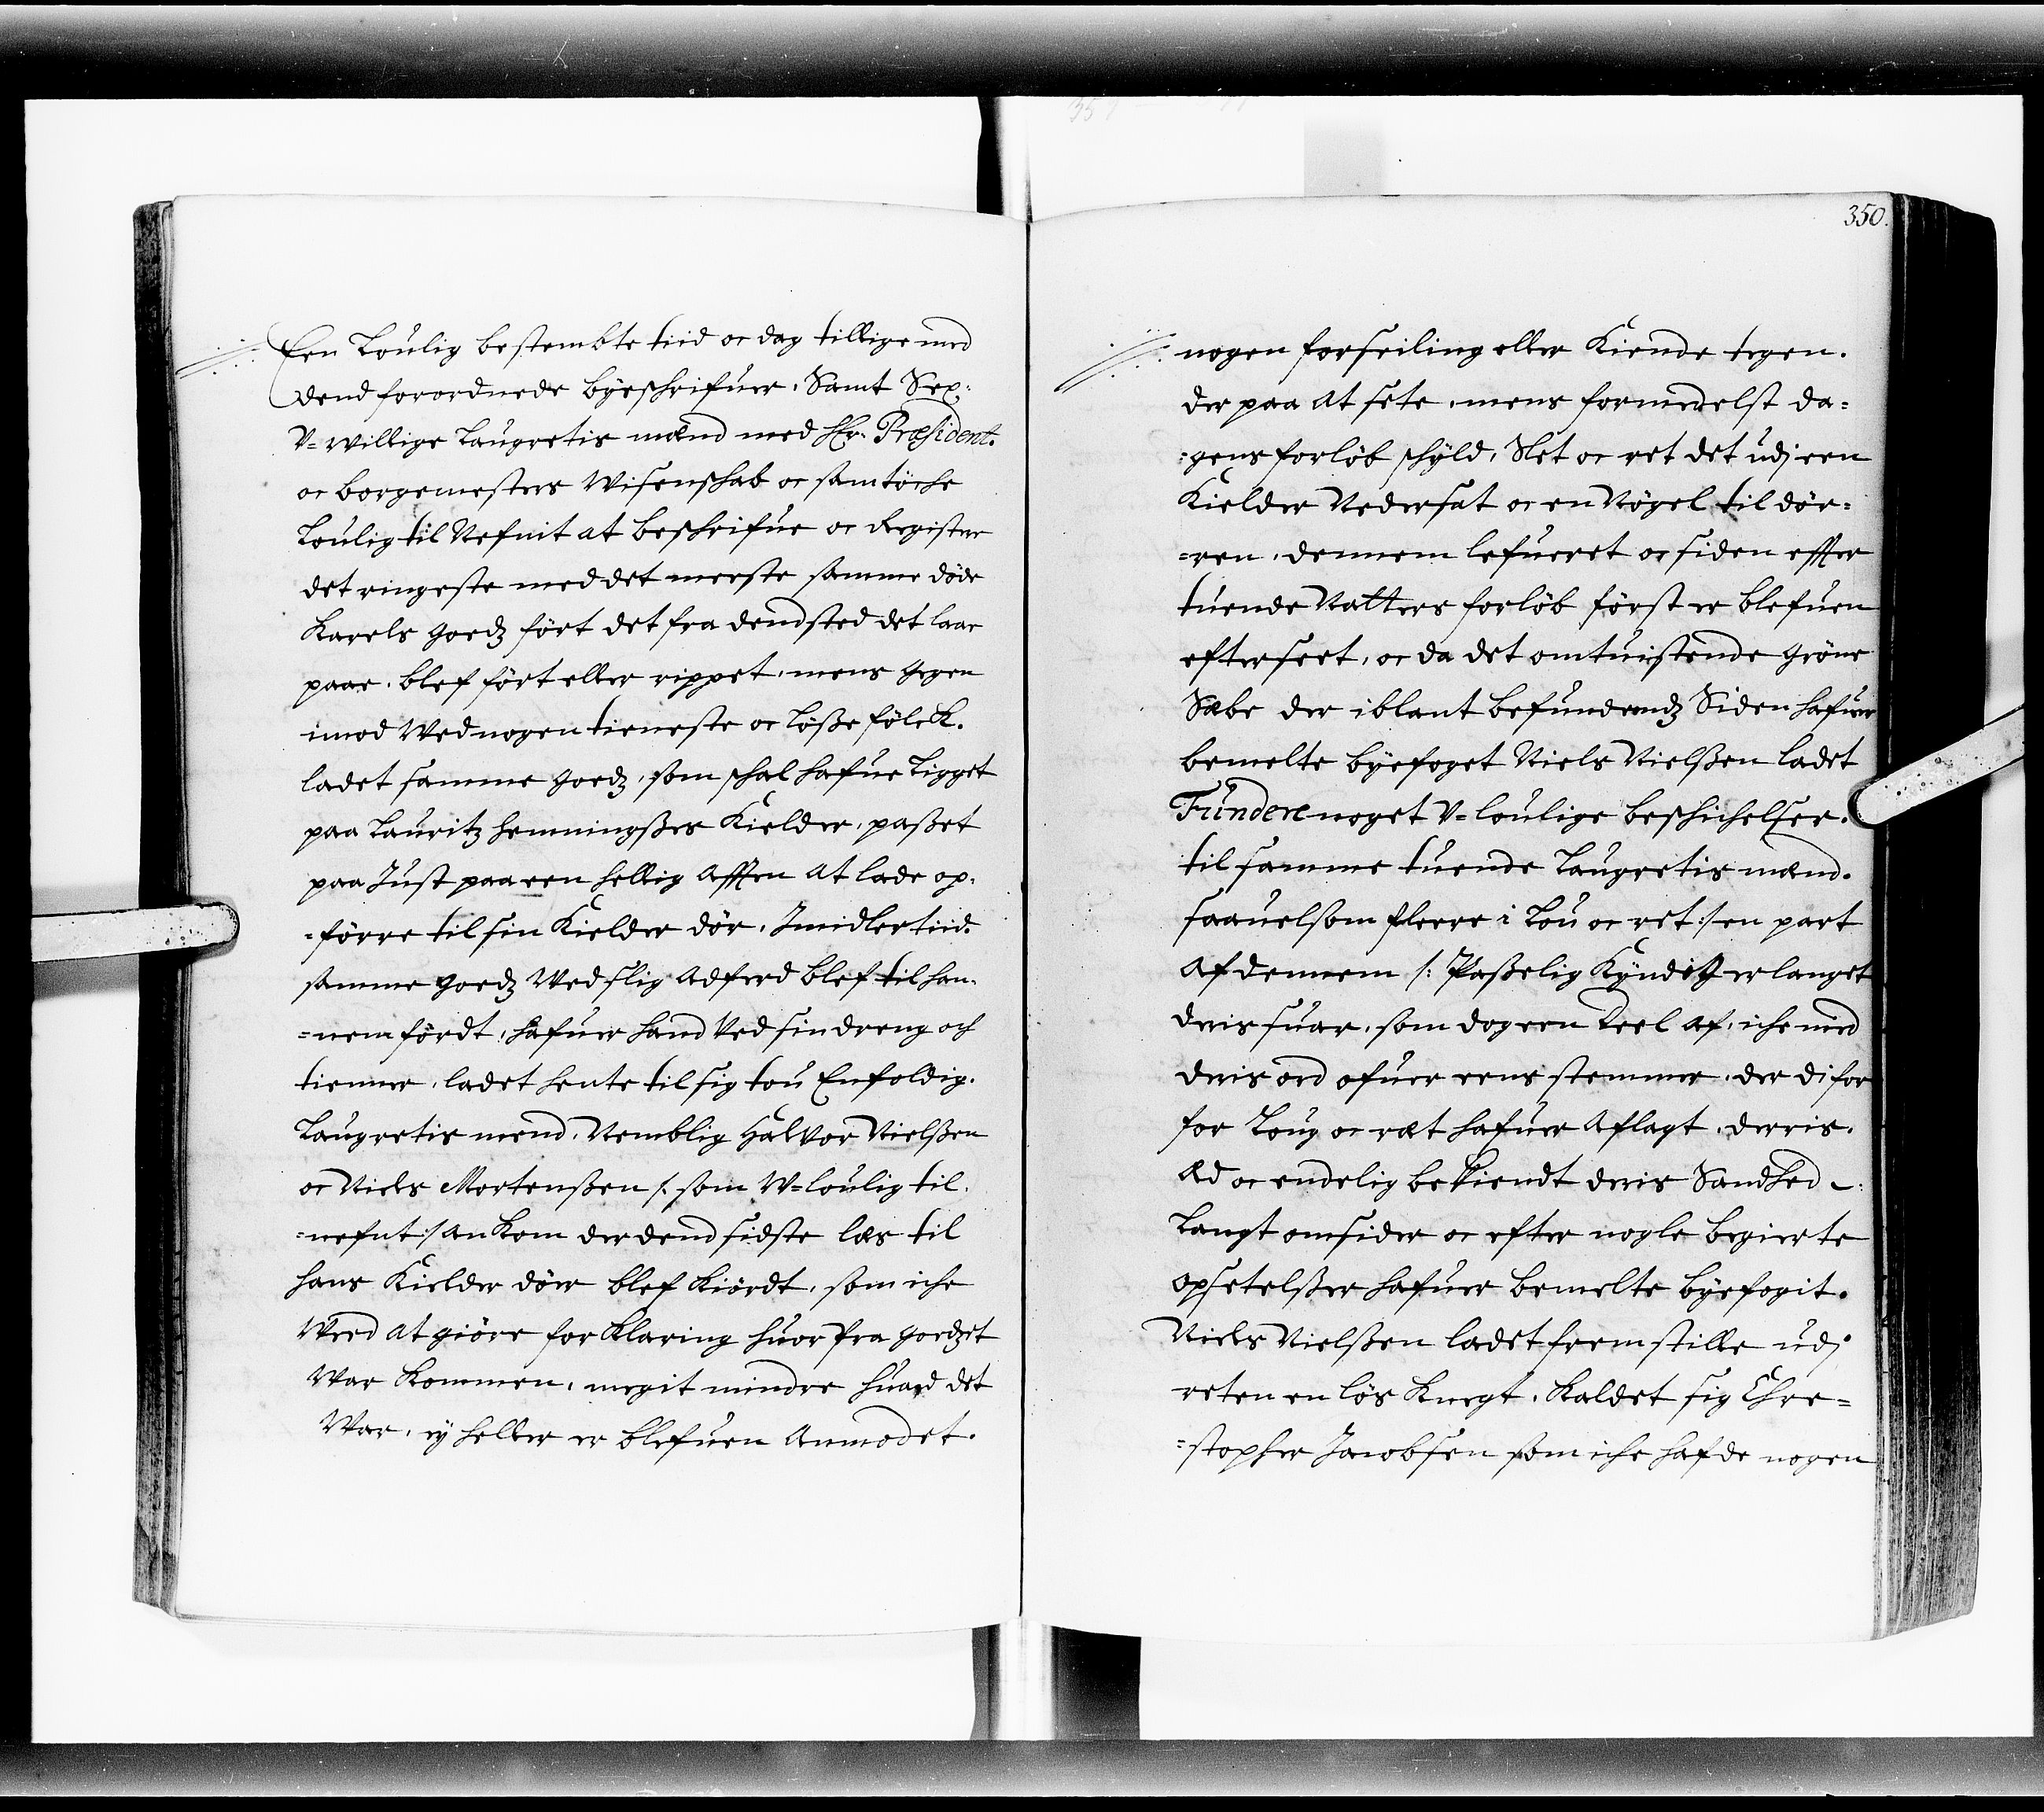 Een Loulig bestembte tiid oc dag tillige med
dend forordnede byeschrifuer, Samt Sex
V-willige Laugretis mænd med Hr. Præsident.
oc borgemesters Widenschab oc samtöche
Loulig til Nefnit at beschrifue oc Registere
det ringeste med det meeste samme döde
Karels goedz fört det fra dend sted det laae
paae, blef fört eller rippet, mens gegen
imod Wed nogen tieneste oc löße fölck.
ladet samme goedz, som schal hafue ligget
paa Lauritz hemmingßes Kielder, paßet
paa Just paa een hellig Afften at lade op-
=förre til sin Kielder dör, Imidlertiid
samme goedz Wed slig Adferd blef til han-
=nem fördt, hafuer hand Ved sin dreng och
tienner, ladet hente til sig tou Enfoldig.
Laugretis mend, Nemblig Halvor Nielßen
oc Niels Mortenßen /: som W-loulig til-
=nefnt :/ an kom der dend sidste læs til
hans Kielder döer blef kiördt, som iche
Weed at giöre forklaring huor fra goedzet
War kommen, megit mindre huad det
War, ey heller er blefuen Anmodet.
350.
nogen forseiling eller Kiende tegen.
der paa at sete, mens formedelst da=
=gens forlöb schyld, Slet oc ret det udj een
Kielder Nedersat oc en Nögel til dör=
=ren, dennem lefueret oc siden effter
tuende Natters forlöb först er blefuen
efterseet, oc da det omtuistende gröne
Sæbe der iblant befundendz Siden hafuer
bemelte byefoget Niels Nielßen ladet
Fundere noget V-loulige beschichelser.
til samme tuende Laugretis mænd.
saauelsom fleere i Lou oc ret :/ en part
af dennem /: Paßelig Kyndig erlanget
deris suar, som dog een deel af, iche med
deris ord ofuer eens stemmer, der di for
for Loug oc ræt hafuer Aflagt, deeris.
Æd oc endelig bekiendt deris Sandhed
Langt omsider oc efter nogle begierte
opsetelßer hafuer bemelte byefogit.
Niels Nielßen ladet fremstille udj
reten en lös Knegt, kaldet sig Chre=
=stopher Jacobsen som iche hafde nogen